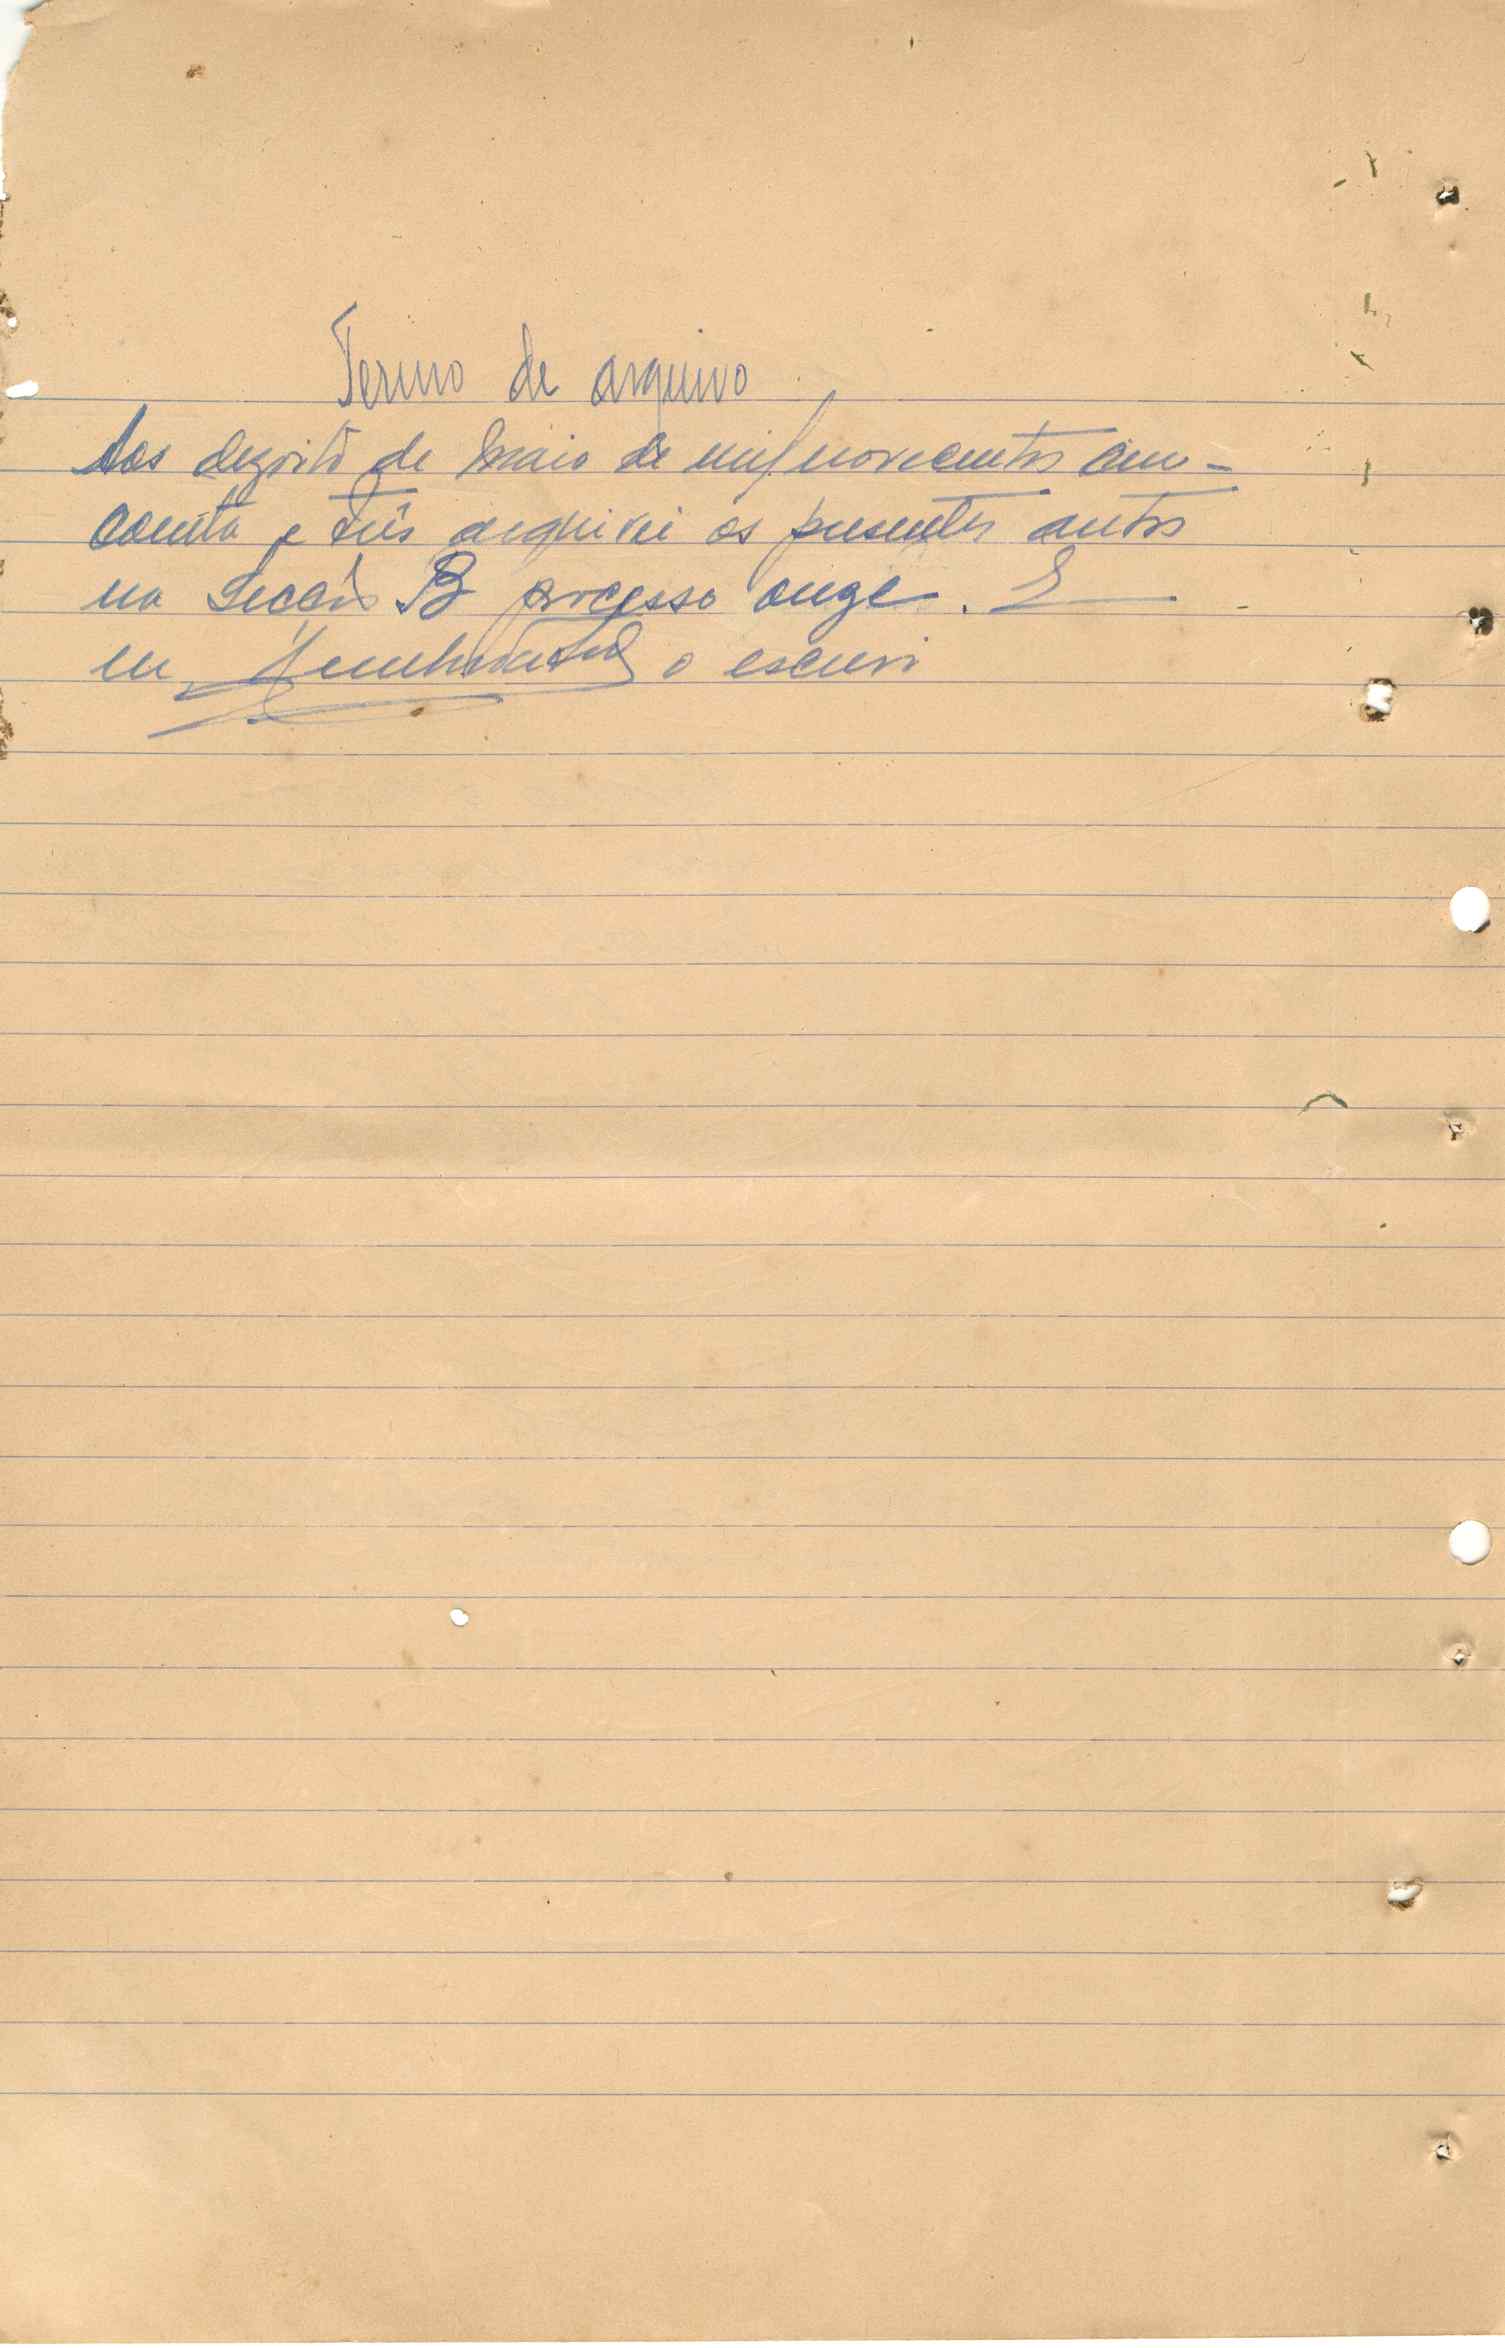 Termo de arquivo
Aos dezoito de Maio de mil novecentos cinco-
coenta e três arquivei os presentes autos
na Secção B processo onze. E
eu, o escrevi